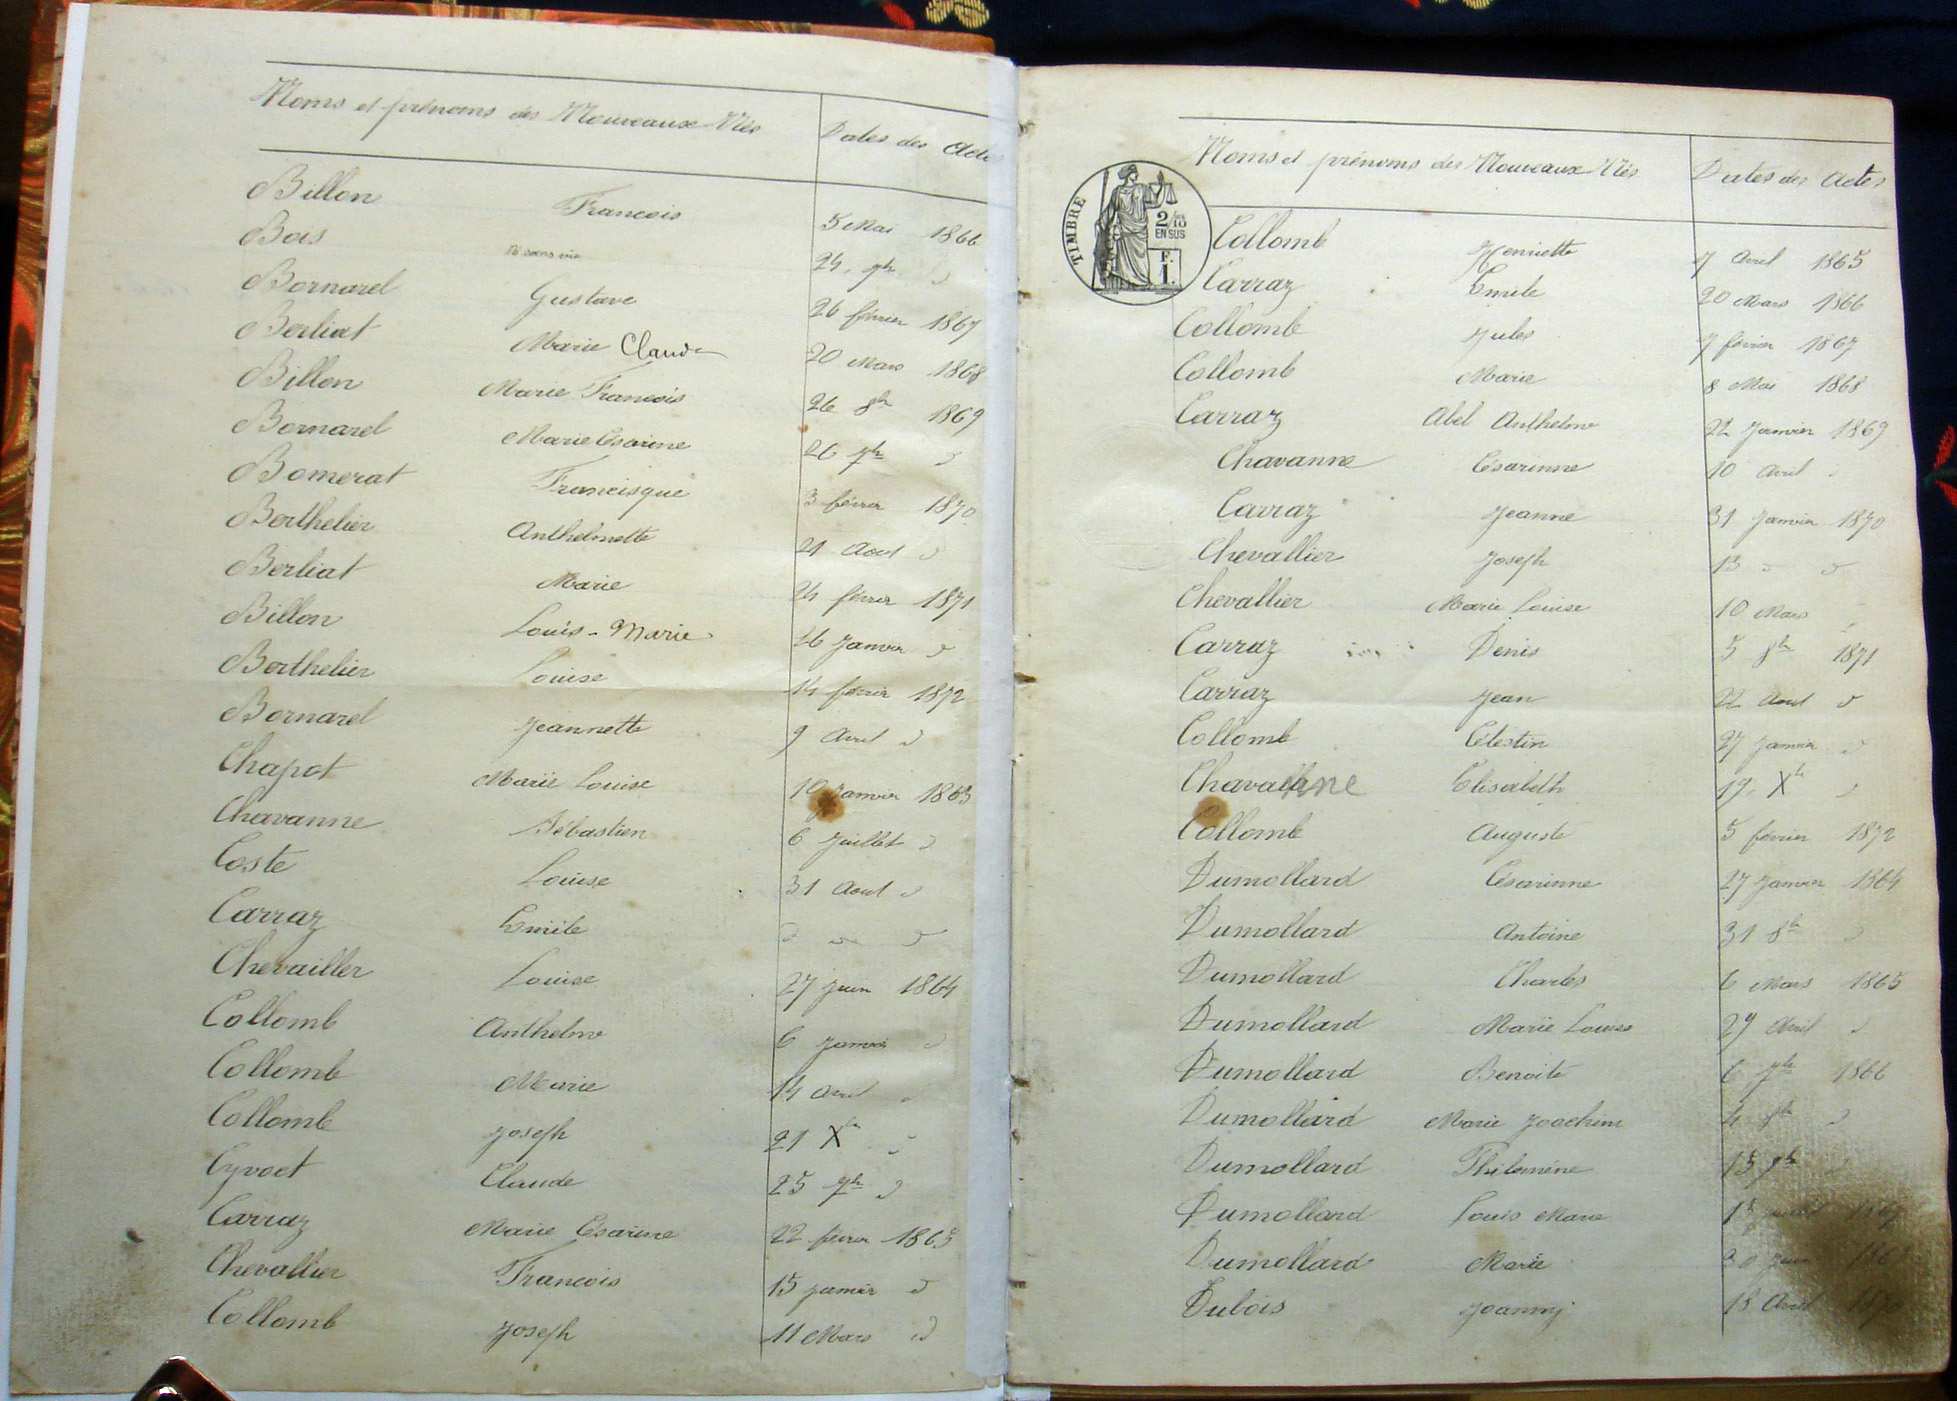 Noms et prénoms des Nouveaux Nés Dates des Actes
Billon François 5 Mai 1866
Bois 24 9bre d
Bornarel Gustave 26 février 1867
Berliat Marie Claude 20 Mars 1868
Billon Marie François 26 8bre 1869
Bornarel Marie Césarine 26 7bre d
Bomerat Francisque 3 février 1870
Berthelier Anthelmette 21 Aout d
Berliat Marie 24 février 1871
Billon Louis-Marie 26 Janvier d
Berthelier Louise 14 février 1872
Bornarel Jeannette 9 Avril d
Chapot Marie Louise 10 Janvier 1863
Chavanne Sébastien 6 Juillet d
Coste Louise 31 Aout d
Carraz Emile d d d
Chevailler Louise 27 juin 1864
Collomb Anthelme 6 Janvier d
Collomb Marie 14 Avril d
Collomb Joseph 21 Xbre d
Cyvoct Claude 25 9bre d
Carraz Marie Césarine 22 février 1865
Chevallier François 15 janvier d
Collomb Joseph 11 Mars d
TIMBRE
2/10 EN SUS
F. 1.
Noms et prénoms des Nouveaux Nés Dates des Actes
Collomb Henriette 7 Avril 1865
Carraz Emile 20 Mars 1866
Collomb Jules 7 février 1867
Collomb Marie 8 Mai 1868
Carraz Abel Anthelme 22 Janvier 1869
Chavanne Césarinne 10 Avril d
Carraz Jeanne 31 Janvier 1870
Chevallier Joseph 13 d d
Chevallier Marie Louise 10 Mars
Carraz Denis 5 8bre 1871
Carraz Jean 22 Aout d
Collomb Célestin 27 Janvier d
Chavanne Elisabeth 19 Xbre d
Collomb Auguste 5 février 1872
Dumollard Césarinne 27 Janvier 1864
Dumollard Antoine 31 8bre d
Dumollard Charles 6 Mars 1865
Dumollard Marie Louise 29 Avril d
Dumollard Benoite 6 7bre 1866
Dumollard Marie Joachim 4 8bre d
Dumollard Philomène 15 9bre d
Dumollard Louis Marie
Dumollard Marie
Dubois Joanny 18 Avril